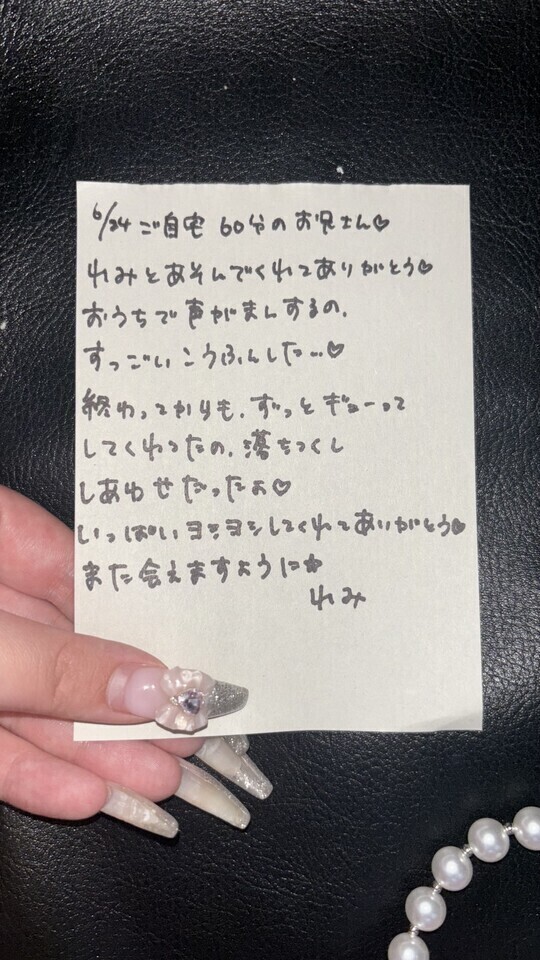 6/24 ご自宅 60分のお兄さん♡
れみとあそんでくれてありがとう♡
おうちで声がまんするの、
すっごいこうふんした…♡
終わってからも、ずっとギューって
してくれてたの、落ちつくし
しあわせだったよ♡
いっぱいヨシヨシしてくれてありがとう♡
また会えますように☆
れみ